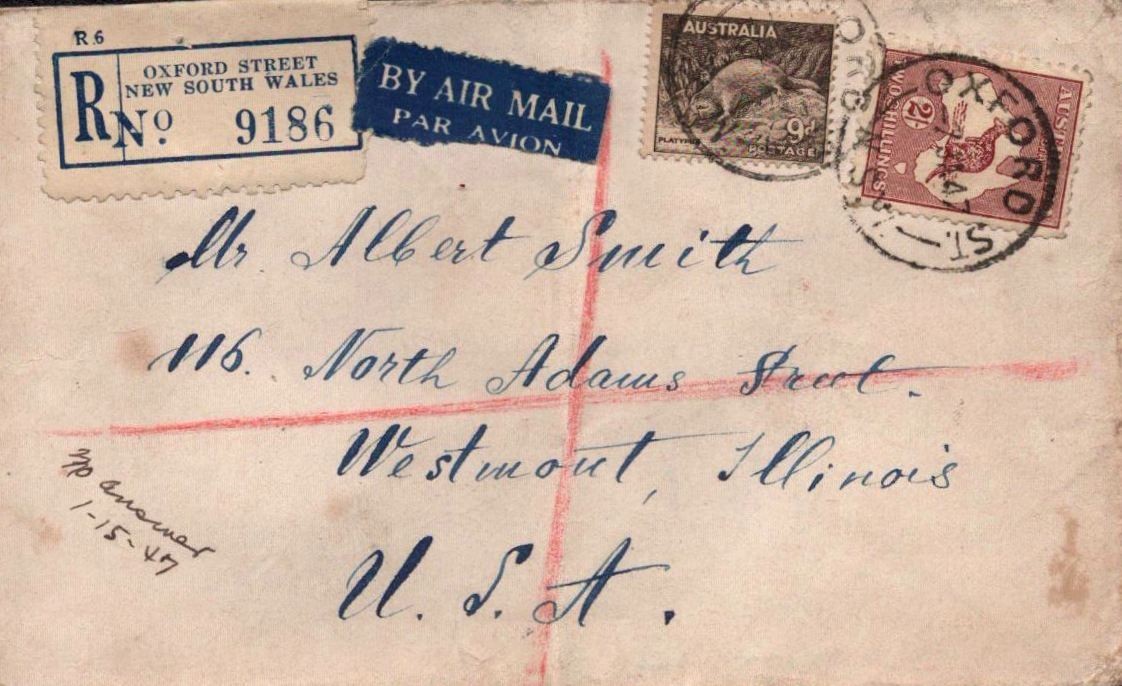 R.6
R No 9186
OXFORD STREET
NEW SOUTH WALES
BY AIR MAIL
PAR AVION
AUSTRALIA
PLATYPUS
9d
POSTAGE
AUST
2/-
TWO SHILLINGS
OXFORD ST.
47
Mr Albert Smith
116. North Adams Street.
Westmont, Illinois
U. S. A.
answer
1-15-47